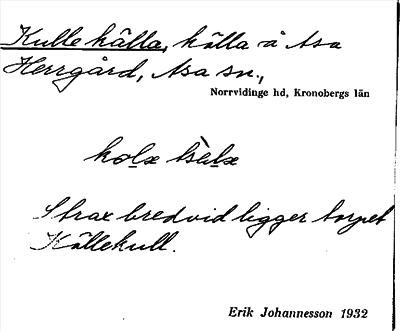 Kulle källa, källa å Asa
Herrgård, Asa sn.,
Norrvidinge hd, Kronobergs län
Strax bredvid ligger torpet
Källekull.
Erik Johannesson 1932